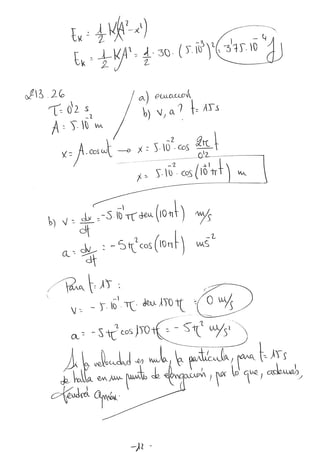 E_K = 1/2 K(A² - x²)
E_K = 1/2 KA² = 1/2 · 30 · (5·10⁻³)² = 3'75·10⁻⁴ J
213.26
T = 0'2 s
A = 5·10⁻² m
a) ecuación
b) v, a? t = 15 s
x = A·cos ωt → x = 5·10⁻² cos 2π/0'2 t
x = 5·10⁻² cos (10πt) m
b) v = dx/dt = -5·10⁻¹ π sen (10πt) m/s
a = dv/dt = -5π² cos (10πt) ms⁻²
Para t = 15:
v = -5·10⁻¹ · π · sen 150π = 0 m/s
a = -5π² cos 150π = -5π² m/s²
Si la velocidad es nula, la partícula, para t = 15 s
se halla en un punto de elongación, por lo que, además,
tendrá amáx.
-12-